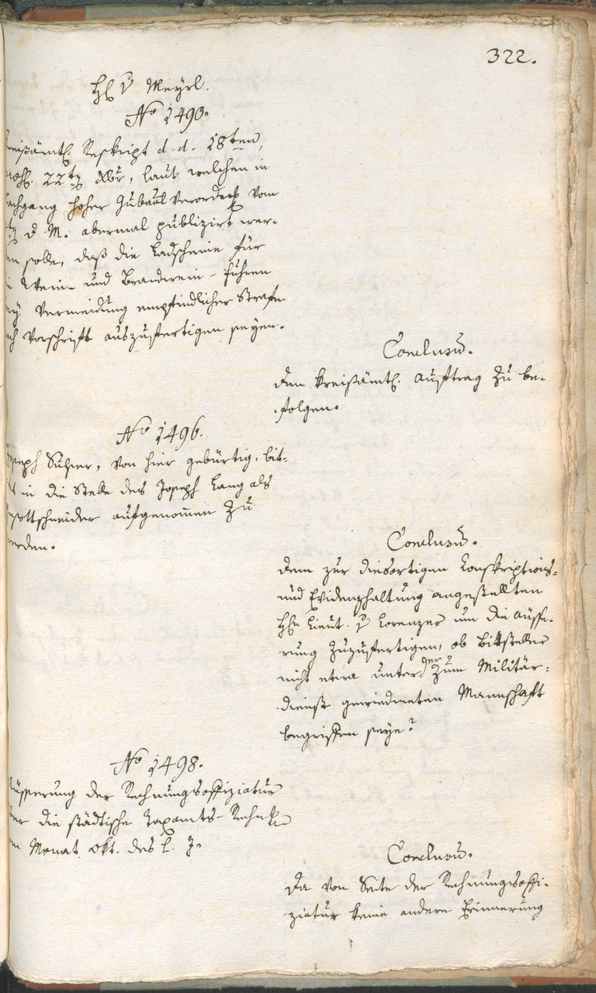 322.
H. v Mayrl.
No 1490.
kreisämtl. Reskript d. d. 18ten,
22t Xbr, laut welchen in
Nachgang hoher Gubaal Verordng vom
d. M. abermal publizirt wer-
en solle, daß die Ladscheine für
Wein- und Brandwein-Fuhren
Vermeidung empfindlicher Strafe
Vorschrift auszufertigen seyen.
Conclusum.
Dem kreisämtl. Auftrag zu be-
folgen.
No 1496.
Joseph von hier gebürtig, bit-
t in die Stelle des Joseph Lang als
aufgenommen zu
werden.
Conclusum.
Dem zur diesortigen Konskriptions-
und Evidenzhaltung angestellten
Hn Lieut. v Lorenzer um die Äusse-
rung zuzufertigen, ob Bittsteller
nicht etwa unter der zum Militär-
dienst gewiedmeten Mannschaft
begriffen seye?
No 1498.
Äusserung der Rechnungsoffiziatur
über die städtische Taxamts-Rechng
Monat Okt. des l. J.
Conclusum.
Da von Seite der Rechnungsoffi-
ziatur keine andere Erinnerung